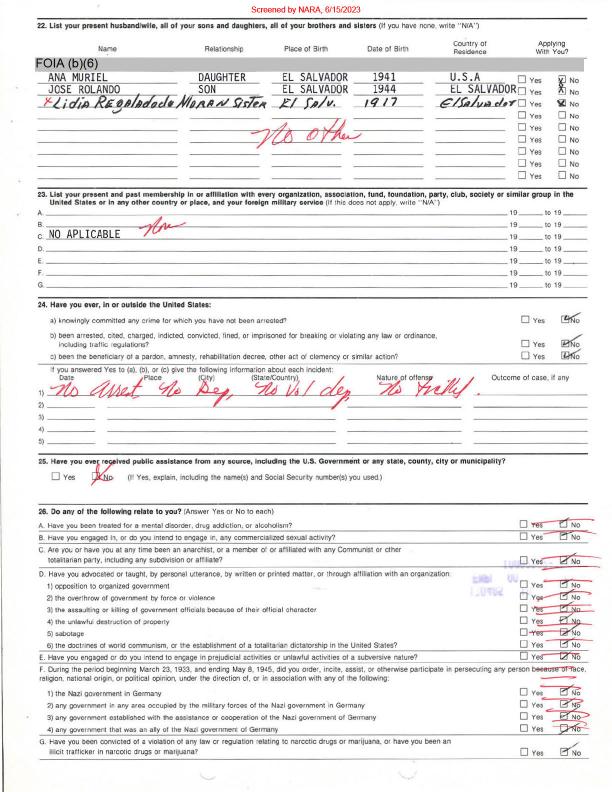 Screened by NARA, 6/15/2023
22. List your present husband/wife, all of your sons and daughters, all of your brothers and sisters (If you have none, write "N/A")
Name Relationship Place of Birth Date of Birth Country of Residence Applying With You?
FOIA (b)(6)
ANA MURIEL DAUGHTER EL SALVADOR 1941 U.S.A ☐ Yes ☒ No
JOSE ROLANDO SON EL SALVADOR 1944 EL SALVADOR ☐ Yes ☒ No
x Lidia Regaladodo Moran Sister El Salv. 1917 El Salvador ☐ Yes ☒ No
☐ Yes ☐ No
☐ Yes ☐ No
No other
☐ Yes ☐ No
☐ Yes ☐ No
☐ Yes ☐ No
☐ Yes ☐ No
23. List your present and past membership in or affiliation with every organization, association, fund, foundation, party, club, society or similar group in the
United States or in any other country or place, and your foreign military service (If this does not apply, write "N/A")
A. 19 to 19
B. 19 to 19
C. NO APLICABLE 19 to 19
D. 19 to 19
E. 19 to 19
F. 19 to 19
G. 19 to 19
24. Have you ever, in or outside the United States:
a) knowingly committed any crime for which you have not been arrested? ☐ Yes ☑ No
b) been arrested, cited, charged, indicted, convicted, fined, or imprisoned for breaking or violating any law or ordinance,
including traffic regulations? ☐ Yes ☑ No
c) been the beneficiary of a pardon, amnesty, rehabilitation decree, other act of clemency or similar action? ☐ Yes ☑ No
If you answered Yes to (a), (b), or (c) give the following information about each incident:
Date Place (City) (State/Country) Nature of offense Outcome of case, if any
1) No Arrest No Dep, No Vol dep No
2)
3)
4)
5)
25. Have you ever received public assistance from any source, including the U.S. Government or any state, county, city or municipality?
☐ Yes ☒ No (If Yes, explain, including the name(s) and Social Security number(s) you used.)
26. Do any of the following relate to you? (Answer Yes or No to each)
A. Have you been treated for a mental disorder, drug addiction, or alcoholism? ☐ Yes ☑ No
B. Have you engaged in, or do you intend to engage in, any commercialized sexual activity? ☐ Yes ☑ No
C. Are you or have you at any time been an anarchist, or a member of or affiliated with any Communist or other
totalitarian party, including any subdivision or affiliate? ☐ Yes ☑ No
D. Have you advocated or taught, by personal utterance, by written or printed matter, or through affiliation with an organization:
1) opposition to organized government ☐ Yes ☑ No
2) the overthrow of government by force or violence ☐ Yes ☑ No
3) the assaulting or killing of government officials because of their official character ☐ Yes ☑ No
4) the unlawful destruction of property ☐ Yes ☑ No
5) sabotage ☐ Yes ☑ No
6) the doctrines of world communism, or the establishment of a totalitarian dictatorship in the United States? ☐ Yes ☑ No
E. Have you engaged or do you intend to engage in prejudicial activities or unlawful activities of a subversive nature? ☐ Yes ☑ No
F. During the period beginning March 23, 1933, and ending May 8, 1945, did you order, incite, assist, or otherwise participate in persecuting any person because of race,
religion, national origin, or political opinion, under the direction of, or in association with any of the following:
1) the Nazi government in Germany ☐ Yes ☑ No
2) any government in any area occupied by the military forces of the Nazi government in Germany ☐ Yes ☑ No
3) any government established with the assistance or cooperation of the Nazi government of Germany ☐ Yes ☑ No
4) any government that was an ally of the Nazi government of Germany ☐ Yes ☑ No
G. Have you been convicted of a violation of any law or regulation relating to narcotic drugs or marijuana, or have you been an
illicit trafficker in narcotic drugs or marijuana? ☐ Yes ☑ No